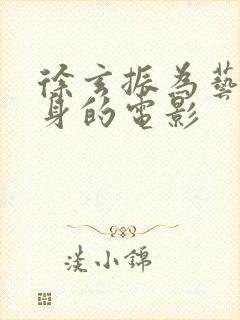 徐玄振為藝
身的電影
淡小錦